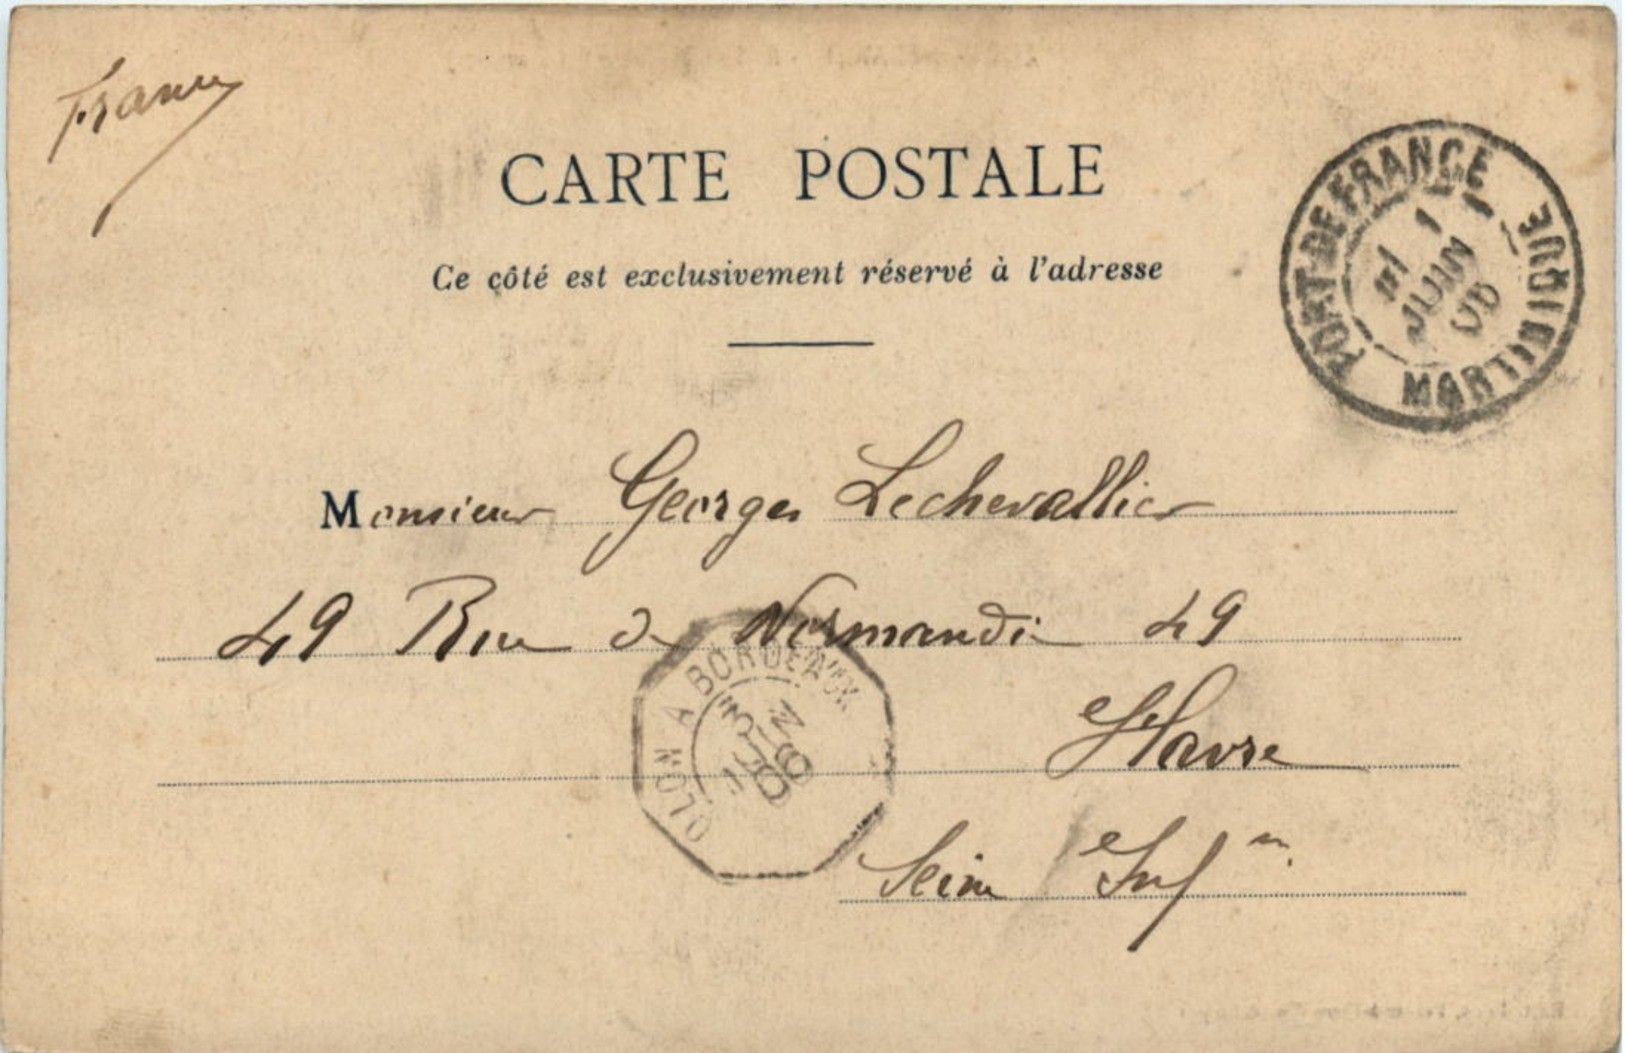 France
CARTE POSTALE
Ce côté est exclusivement réservé à l'adresse
FORT DE FRANCE
1
JUIN
06
MARTINIQUE
Monsieur Georges Lechevallier
49 Rue de Normandie 49
COLON A BORDEAUX
3
JUIN
06
Havre
Seine Infre